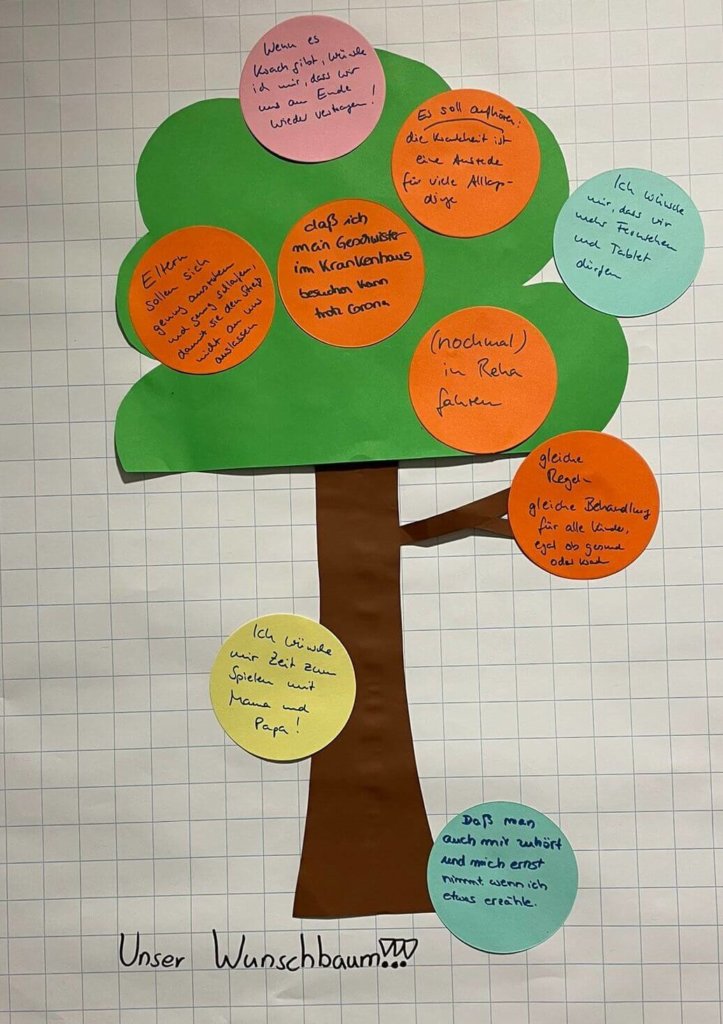 Wenn es
Krach gibt, wünsche
ich mir, dass wir
uns am Ende
wieder vertragen!
Es soll aufhören:
die Krankheit ist
eine Ausrede
für viele Alltags-
dinge
Ich wünsche
mir, dass wir
mehr Fernsehen
und Tablet
dürfen
daß ich
mein Geschwister
im Krankenhaus
besuchen kann
trotz Corona
Eltern
sollen sich
genug ausruhen
und genug schlafen,
damit sie den Streß
nicht an uns
auslassen
(nochmal)
in Reha
fahren
gleiche
Regel-
gleiche Behandlung
für alle Kinder,
egal ob gesund
oder krank
Ich wünsche
mir Zeit zum
Spielen mit
Mama und
Papa!
Daß man
auch mir zuhört
und mich ernst
nimmt wenn ich
etwas erzähle.
Unser Wunschbaum!!!